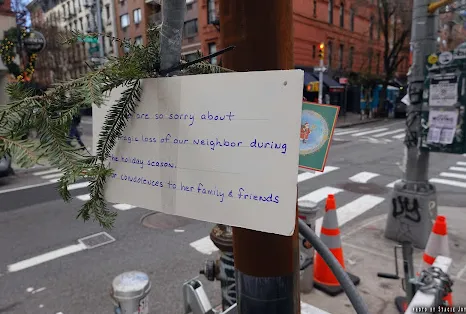 are so sorry about
tragic loss of our neighbor during
the holiday season.
our condolences to her family & friends
PHOTO BY STACIE JOY